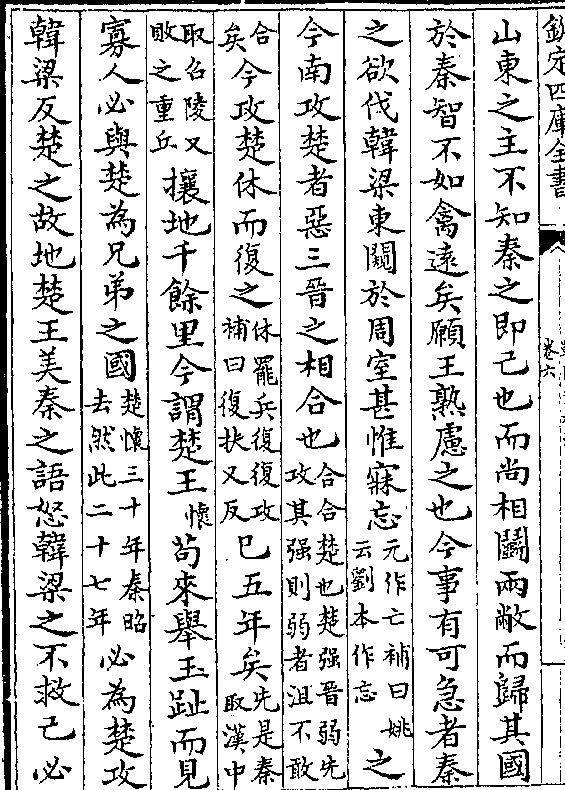 欽定四庫全書
卷六
山東之主不知秦之即已也而尚相鬭兩敝而歸其國
於秦智不如禽逺矣願王熟慮之也今事有可急者秦
之欲伐韓梁東闚於周室甚惟寐忘元作亡補曰姚云劉本作忘之
今南攻楚者惡三晉之相合也合合楚也楚强晉弱先攻其强則弱者沮不敢
合矣今攻楚休而復之休罷兵復復攻補曰復扶又反已五年矣先是秦取漢中
取召陵又敗之重丘攘地千餘里今謂楚王懷茍來舉玉趾而見
寡人必與楚為兄弟之國楚懷三十年秦昭去然此二十七年必為楚攻
韓梁反楚之故地楚王美秦之語怒韓梁之不救已必